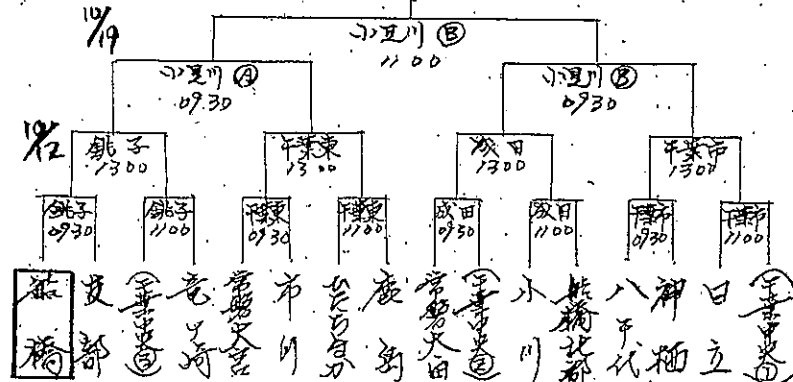 10/19
小見川 Ⓑ
11 00
小見川 Ⓐ
09.30
小見川 Ⓑ
09.30
10/12
銚子
13 00
千葉東
13 00
成田
13 00
千葉市
13 00
銚子
09.30
銚子
11 00
千葉東
09.30
千葉東
11 00
成田
09.30
成田
11 00
千葉市
09.30
千葉市
11 00
船橋
友部
(千葉中央③)
竜ヶ崎
常磐大宮
市川
ひたちなか
鹿島
常磐太田
(千葉中央②)
小川
船橋北部
八千代
神栖
日立
(千葉中央①)